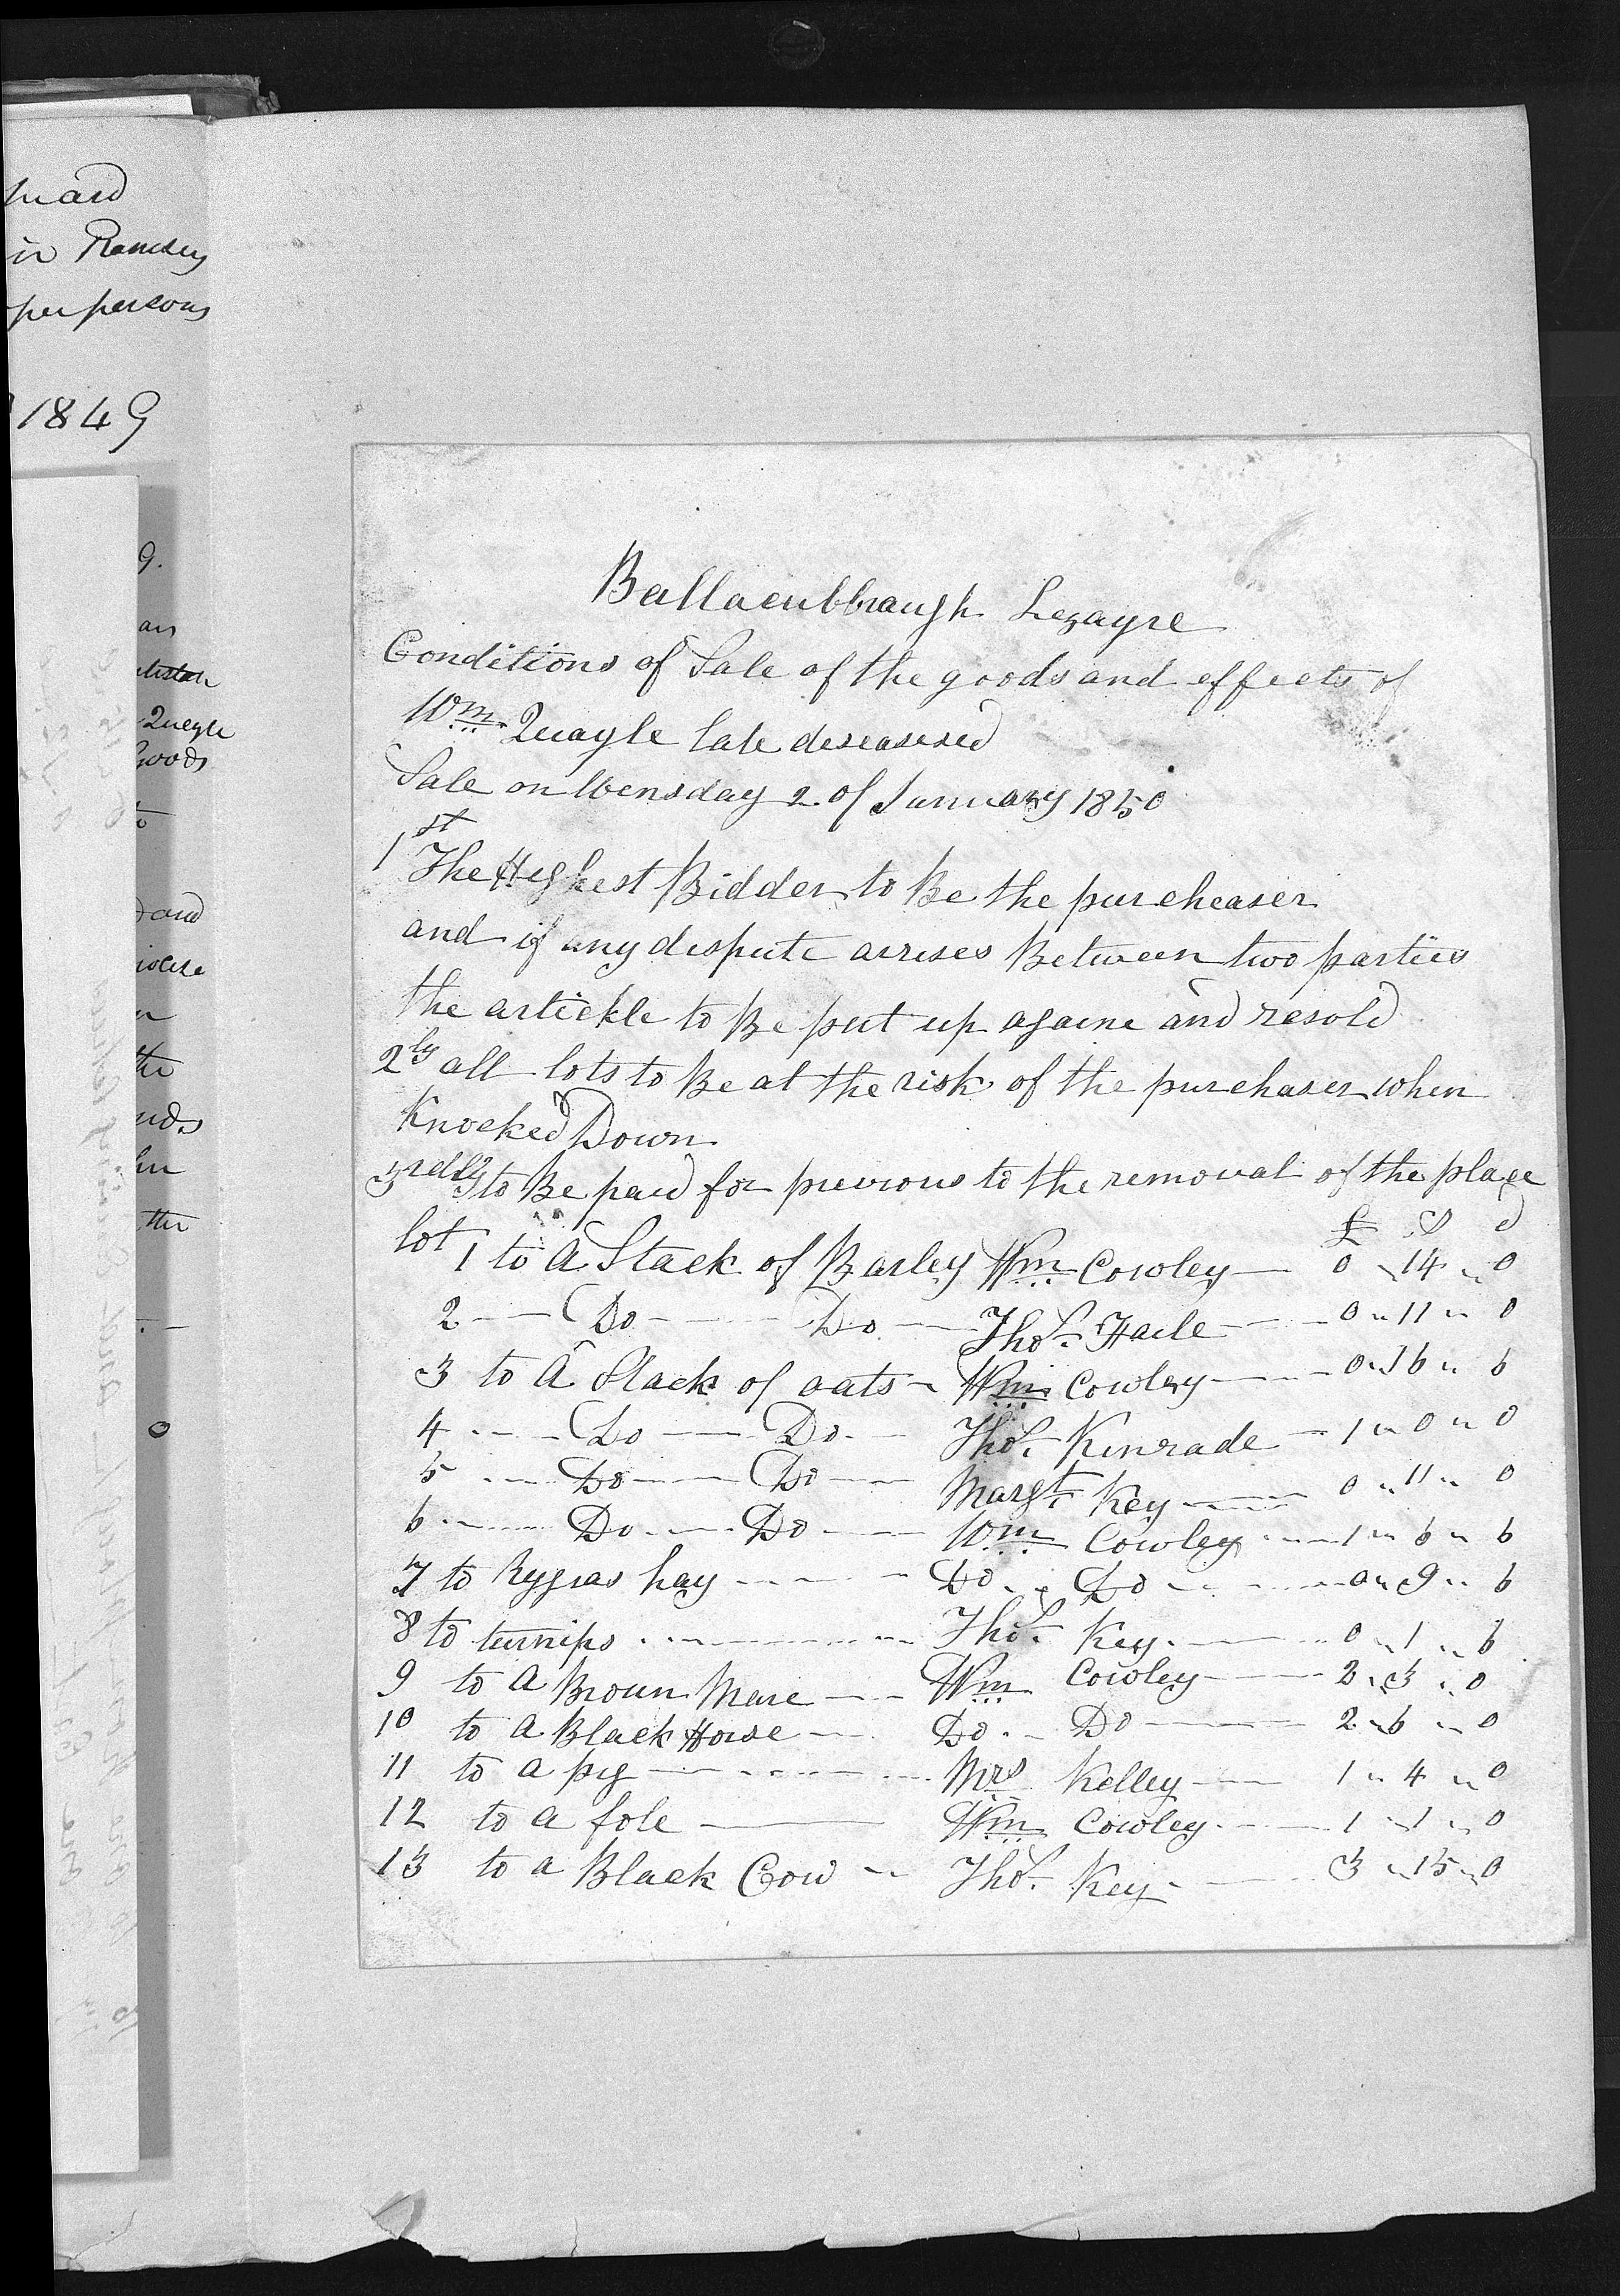 hard
in Ramsey
per persons
1849
9.
an
Quayle
Goods
to
and
the
nds
tter
0
Ballacubbraugh Lezayre
Conditions of Sale of the goods and effects of
Wm Quayle late deseasesed
Sale on Wensday 2 of January 1850
1st The Highest Bidder to Be the purcheaser
and if any dispute arrises Between two parties
the artickle to Be put up againe and resold
2ly all lots to Be at the risk of the purchaser when
Knocked Down
3rdly to Be paid for previous to the removal of the place
£ S d
lot 1 to A Stack of Barley Wm Cowley 0 " 14 " 0
2 Do Do Thos. Haile 0 " 11 " 0
3 to A Stack of oats Wm Cowley 0 " 16 " 6
4 Do Do Thos. Kinrade 1 " 0 " 0
5 Do Do Margt. Key 0 " 11 " 0
6 Do Do Wm Cowley 1 " 6 " 6
7 to Rygras hay Do Do 0 " 9 " 6
8 to turnips Thos. Key 0 " 1 " 6
9 to A Broun Mare Wm Cowley 2 " 3 " 0
10 to A Black Horse Do Do 2 " 6 " 0
11 to a pig Mrs Kelley 1 " 4 " 0
12 to a fole Wm Cowley 1 " 1 " 0
13 to a Black Cow Thos. Key 3 " 15 " 0